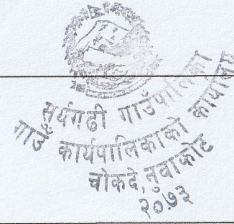 सूर्यगढी गाउँपालिका
गाउँ कार्यपालिकाको कार्यालय
चोकदे, नुवाकोट
२०७३